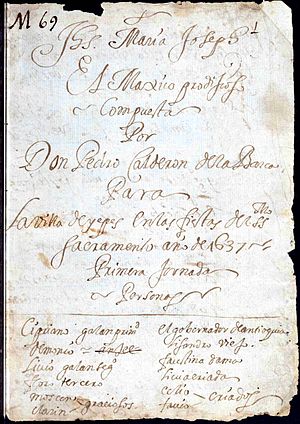 M 69
Jhs Maria Joseph
El Maxico prodijioso
Compuesta
Por
Don Pedro Calderon de la Barca
Para
La villa de yepes en las fiestas del SSmo
Sacramento año de 1637
Primera Jornada
Personas
Cipriano galan prim
Demonio
Livio galan seg
tercero
moscon graciosos
clarin
el gobernador de antioquia
Lisandro viejo
faustina dama
livia criada
criados